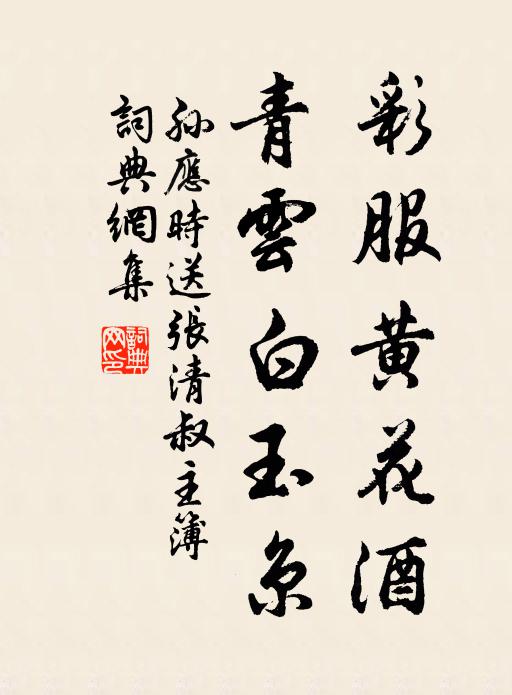 彩服黄花酒
青雲白玉京
孫應時送張清叔主簿
詞典網集
詞典网印